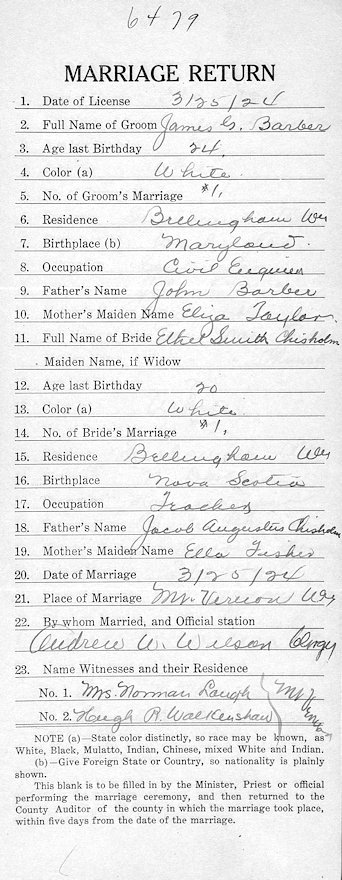 6479
MARRIAGE RETURN
1. Date of License 3/25/24
2. Full Name of Groom James G. Barber
3. Age last Birthday 24
4. Color (a) White
5. No. of Groom's Marriage #1,
6. Residence Bellingham Wn
7. Birthplace (b) Maryland.
8. Occupation Civil Engineer
9. Father's Name John Barber
10. Mother's Maiden Name Eliza Taylor
11. Full Name of Bride Ethel Smith Chisholm
Maiden Name, if Widow
12. Age last Birthday 20
13. Color (a) White
14. No. of Bride's Marriage #1,
15. Residence Bellingham Wn
16. Birthplace Nova Scotia
17. Occupation Teacher
18. Father's Name Jacob Augustus Chisholm
19. Mother's Maiden Name Ella Fisher
20. Date of Marriage 3/25/24
21. Place of Marriage Mt. Vernon Wn
22. By whom Married, and Official station
Andrew W. Wilson Clergy
23. Name Witnesses and their Residence
No. 1. Mrs. Norman Mt
No. 2. Hugh R. Walkenshaw Vernon
NOTE (a)—State color distinctly, so race may be known, as
White, Black, Mulatto, Indian, Chinese, mixed White and Indian.
(b)—Give Foreign State or Country, so nationality is plainly
shown.
This blank is to be filled in by the Minister, Priest or official
performing the marriage ceremony, and then returned to the
County Auditor of the county in which the marriage took place,
within five days from the date of the marriage.